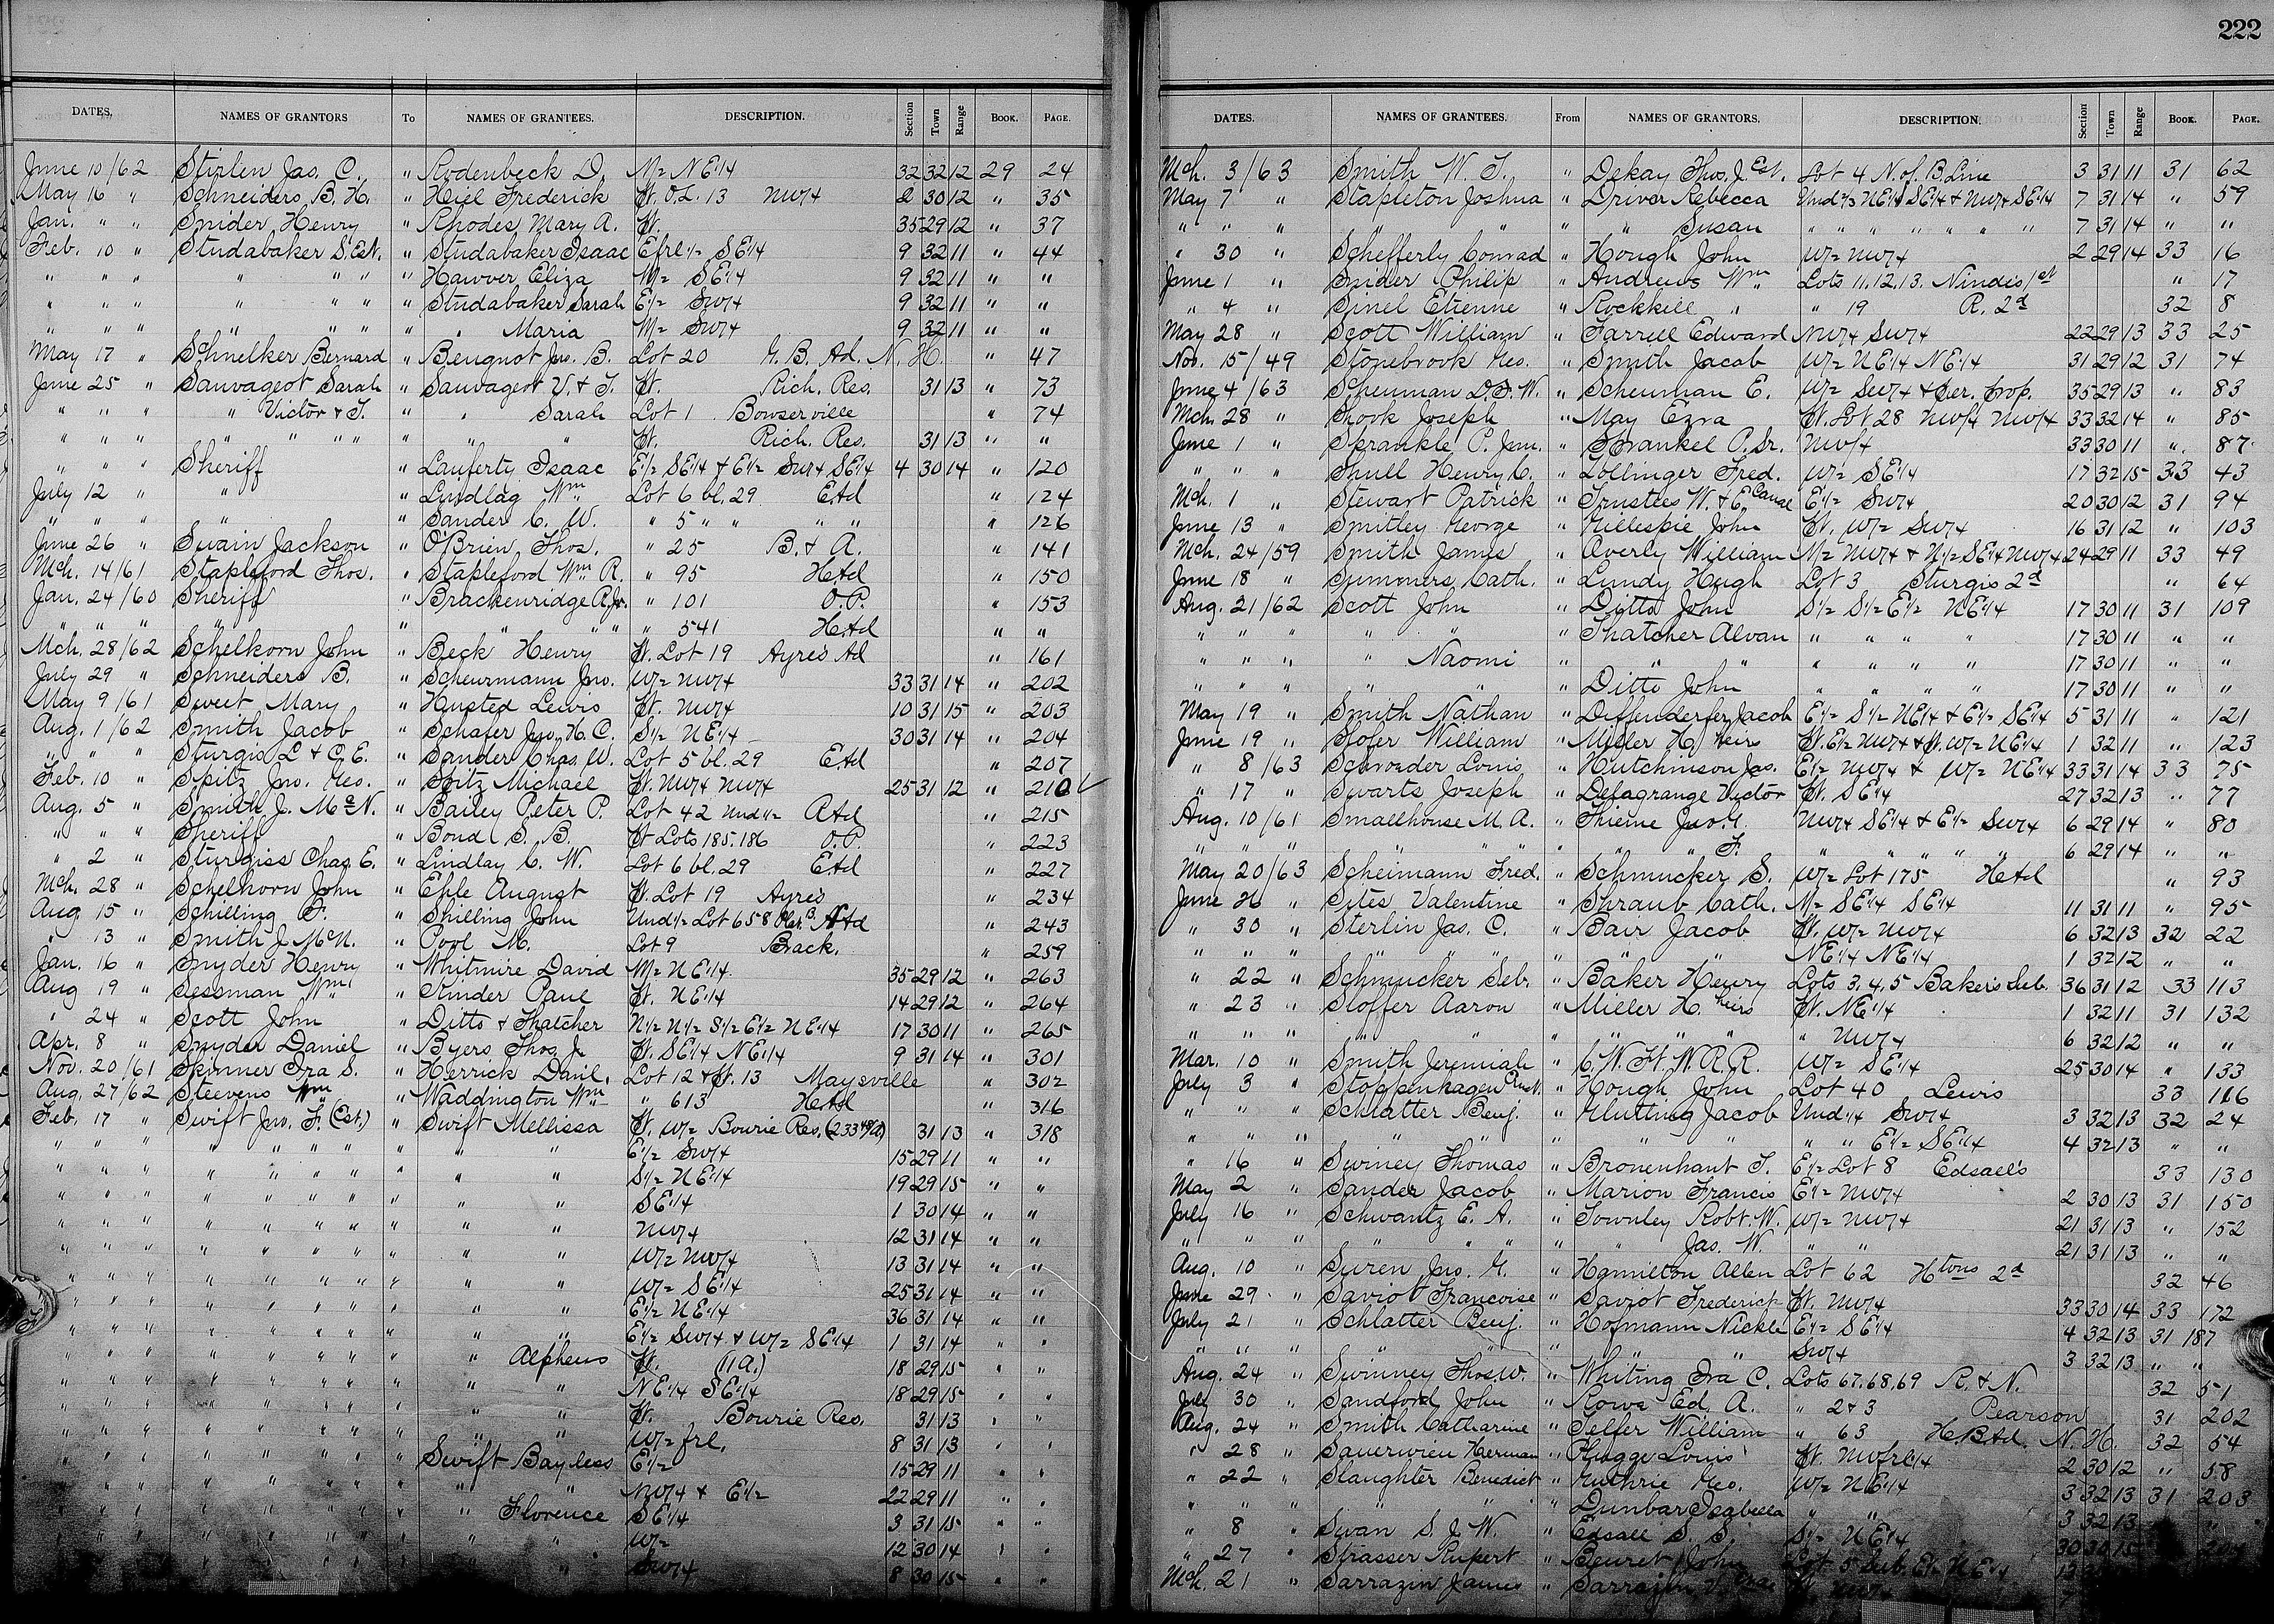 222
DATES. NAMES OF GRANTORS To NAMES OF GRANTEES. DESCRIPTION. Section Town Range BOOK. PAGE.
June 10/62 Stirlen Jas. C. " Rodenbeck D. M= N E1/4 32 32 12 29 24
May 16 " Schneiders B. H. " Hiel Frederick Pt. O.L. 13 NW/4 2 30 12 " 35
Jan. " " Snider Henry " Rhodes Mary A. Pt. 35 29 12 " 37
Feb. 10 " Studabaker S. Est. " Studabaker Isaac E frl 1/2 S E1/4 9 32 11 " 44
" " " " " " " Hawver Eliza W/= S E1/4 9 32 11 " "
" " " " " " " Studabaker Sarah E1/2 SW/4 9 32 11 " "
" " " " " " " " Maria W/= SW/4 9 32 11 " "
May 17 " Schnelker Bernard " Beugnot Jno. B. Lot 20 G. B. Ad. N. H. " 47
June 25 " Sauvageot Sarah " Sauvageot V. & T. Pt. Rich. Res. 31 13 " 73
" " " " Victor & T. " " Sarah Lot 1 Bowserville " 74
" " " " " " " " " " Pt. Rich. Res. 31 13 " "
" " " Sheriff " Lauferty Isaac E1/2 SE1/4 & E1/2 SW/4 SE1/4 4 30 14 " 120
July 12 " " " Lindlag Wm Lot 6 bl. 29 EAd " 124
" " " " " Sander C. W. " 5 " " " " " 126
June 26 " Swain Jackson " O'Brien Thos. " 25 B. & A. " 141
Mch. 14/61 Stapleford Thos. " Stapleford Wm R. " 95 HAd " 150
Jan. 24/60 Sheriff " Brackenridge R. Jr. " 101 O.P. " 153
" " " " " " " " " 541 HAd " "
Mch. 28/62 Schelkorn John " Beck Henry Pt. Lot 19 Ayres Ad " 161
July 29 " Schneiders B. " Scheurmann Jno. W/= NW/4 33 31 14 " 202
May 9/61 Sweet Mary " Husted Lewis Pt. NW/4 10 31 15 " 203
Aug. 1/62 Smith Jacob " Schafer Jno. H. C. S1/2 N E1/4 30 31 14 " 204
" " " Sturgis L & C. E. " Sander Chas. W. Lot 5 bl. 29 EAd " 207
Feb. 10 " Spitz Jno. Geo. " Spitz Michael Pt. NW/4 NW/4 25 31 12 " 210 ✓
Aug. 5 " Smith J. Mc N. " Bailey Peter P. Lot 42 Und 1/2 AAd " 215
" " " Sheriff " Bond S. B. Pt Lots 185. 186 O.P. " 223
" 2 " Sturgiss Chas. E. " Lindlay C. W. Lot 6 bl. 29 EAd " 227
Mch. 28 " Schelkorn John " Ehle August Pt. Lot 19 Ayres " 234
Aug. 15 " Schilling P. " Shilling John Und 1/2 Lot 658 " 243
" 13 " Smith J. McN. " Pool M. Lot 9 Brack. " 259
Jan. 16 " Snyder Henry " Whitmire David M= N E1/4 35 29 12 " 263
Aug 19 " Sessman Wm " Kinder Paul Pt. N E1/4 14 29 12 " 264
" 24 " Scott John " Ditto & Thatcher N1/2 N1/2 S1/2 E1/2 N E1/4 17 30 11 " 265
Apr. 8 " Snyder Daniel " Byers Thos. J. Pt. S E1/4 N E1/4 9 31 14 " 301
Nov. 20/61 Skinner Ira S. " Herrick Danl. Lot 12 & Pt. 13 Maysville " 302
Aug. 27/62 Steevens Wm " Waddington Wm " 613 HAd " 316
Feb. 17 " Swift Jno. F. (Est.) " Swift Mellissa Pt. W/= Bourie Res. 31 13 " 318
" " " " " " " " " " E1/2 SW/4 15 29 11 " "
" " " " " " " " " " S1/2 N E1/4 19 29 15 " "
" " " " " " " " " " S E1/4 1 30 14 " "
" " " " " " " " " " NW/4 12 31 14 " "
" " " " " " " " " " W/= NW/4 13 31 14 " "
" " " " " " " " " " W/= S E1/4 25 31 14 " "
" " " " " " " " " " E1/2 N E1/4 36 31 14 " "
" " " " " " " " " " E1/2 SW/4 & W/= S E1/4 1 31 14 " "
" " " " " " " " " Alpheus Pt. (11 A.) 18 29 15 " "
" " " " " " " " " " NE1/4 S E1/4 18 29 15 " "
" " " " " " " " " " Pt. Bourie Res. 31 13 " "
" " " " " " " " " " W/= frl. 8 31 13 " "
" " " " " " " " Swift Bayless E1/2 15 29 11 " "
" " " " " " " " " " NW/4 & E1/2 22 29 11 " "
" " " " " " " " " Florence S E1/4 3 31 15 " "
" " " " " " " " " " W/= 12 30 14 " "
" " " " " " " " " " SW/4 8 30 15 " "
DATES. NAMES OF GRANTEES. From NAMES OF GRANTORS. DESCRIPTION. Section Town Range BOOK. PAGE.
Mch. 3/63 Smith W. T. " Dekay Thos. J. Est. Lot 4 N. of B. Line 3 31 11 31 62
May 7 " Stapleton Joshua " Driver Rebecca Und 2/3 NE1/4 SE1/4 & NW/4 SE1/4 7 31 14 " 59
" " " " " " " Susan " " " " " " " 7 31 14 " "
" 30 " Schefferly Conrad " Hough John W/= NW/4 2 29 14 33 16
June 1 " Snider Philip " Andrews Wm Lots 11. 12. 13. Nindis 1st " 17
" 4 " Sinel Etienne " Rockhill " " 19 R. 2d 32 8
May 28 " Scott William " Farrell Edward NW/4 SW/4 22 29 13 33 25
Nov. 15/49 Stonebrook Geo. " Smith Jacob W/= N E1/4 N E1/4 31 29 12 31 74
June 4/63 Scheuman D. F. W. " Scheuman E. W/= SW/4 & Per. Prop. 35 29 13 " 83
Mch. 28 " Shook Joseph " May Ezra Pt. Lot 28 NW/4 NW/4 33 32 14 " 85
June 1 " Sprankle P. Jun. " Sprankel P. Sr. NW/4 33 30 11 " 87
" " " Shull Henry C. " Lollinger Fred. W/= S E1/4 17 32 15 33 43
Mch. 1 " Stewart Patrick " Trustees W. & E Canal E1/2 SW/4 20 30 12 31 94
June 13 " Smitley George " Gillespie John Pt. W/= SW/4 16 31 12 " 103
Mch. 24/59 Smith James " Overly William M= NW/4 & N1/2 SE1/4 NW/4 24 29 11 33 49
June 18 " Summers Cath. " Lundy Hugh Lot 3 Sturgis 2d " 64
Aug. 21/62 Scott John " Ditto John S1/2 S1/2 E1/2 N E1/4 17 30 11 31 109
" " " " " " Thatcher Alvan " " " " 17 30 11 " "
" " " " Naomi " " " " " " " 17 30 11 " "
" " " " " " Ditto John " " " " 17 30 11 " "
May 19 " Smith Nathan " Diffenderfer Jacob E1/2 S1/2 NE1/4 & E1/2 SE1/4 5 31 11 " 121
June 19 " Stofer William " Miller H. heirs Pt. E1/2 NW/4 & Pt. W/= N E1/4 1 32 11 " 123
" 8/63 Schroeder Louis " Hutchinson Jas. E1/2 NW/4 & W/= N E1/4 33 31 14 33 75
" 17 " Swarts Joseph " Delagrange Victor Pt. S E1/4 27 32 13 " 77
Aug. 10/61 Smallhouse M. A. " Thieme Jno. G. NW/4 SE1/4 & E1/2 SW/4 6 29 14 " 80
" " " " " " " " F. " " " " " 6 29 14 " "
May 20/63 Scheimann Fred. " Schmucker S. W/= Lot 175 HAd " 93
June 26 " Sites Valentine " Shraub Cath. M= S E1/4 S E1/4 11 31 11 " 95
" 30 " Sterlin Jas. C. " Bair Jacob Pt. W/= NW/4 6 32 13 32 22
" " " " " " " " NE1/4 NE1/4 1 32 12 " "
" 22 " Schmucker Seb. " Baker Henry Lots 3. 4. 5 Bakers Sub. 36 31 12 33 113
" 23 " Stoffer Aaron " Miller H. heirs Pt. NE1/4 1 32 11 31 132
" " " " " " " " " " NW/4 6 32 12 " "
Mar. 10 " Smith Jeremiah " C. W. Ft. W. R. R. W/= S E1/4 25 30 14 " 133
July 3 " Stoppenhagen " Hough John Lot 40 Lewis 33 116
" " " Schlatter Benj. " Glutting Jacob Und 1/4 SW/4 3 32 13 32 24
" " " " " " " " " " E1/2 S E1/4 4 32 13 " "
" 16 " Swiney Thomas " Bronenhant T. E1/2 Lot 8 Edsall's 33 130
May 2 " Sander Jacob " Marion Francis E1/2 NW/4 2 30 13 31 150
July 16 " Schwantz E. A. " Townley Robt. W. W/= NW/4 21 31 13 " 152
" " " " " " " Jas. W. " " 21 31 13 " "
Aug. 10 " Suren Jno. G. " Hamilton Allen Lot 62 Htons 2d 32 46
June 29 " Saviot Francoise " Saviot Frederick Pt. NW/4 33 30 14 33 172
July 21 " Schlatter Benj. " Hofmann Nickle E1/2 S E1/4 4 32 13 31 187
" " " " " " " " SW/4 3 32 13 " "
Aug. 24 " Swinney Thos. W. " Whiting Ira C. Lots 67. 68. 69 R. & N. 32 51
July 30 " Sandford John " Rowe Ed. A. " 2 & 3 Pearson 31 202
Aug. 24 " Smith Catharine " Telfer William " 63 H.B Ad. N. H. 32 54
" 28 " Sauerwien Herman " Plugge Louis Pt. NW frl 1/4 2 30 12 " 58
" 22 " Slaughter Benedict " Guthrie Geo. W/= N E1/4 3 32 13 31 203
" " " " " " Dunbar Isabella " " 3 32 13 " "
" 8 " Swan S. J. W. " Edsall S. S. S1/2 N E1/4 30 30 15
" 27 " Strasser Rupert " Beuret John Lot 5 Sub. E1/2 N E1/4
Mch. 21 " Sarrazin James " Sarrazin